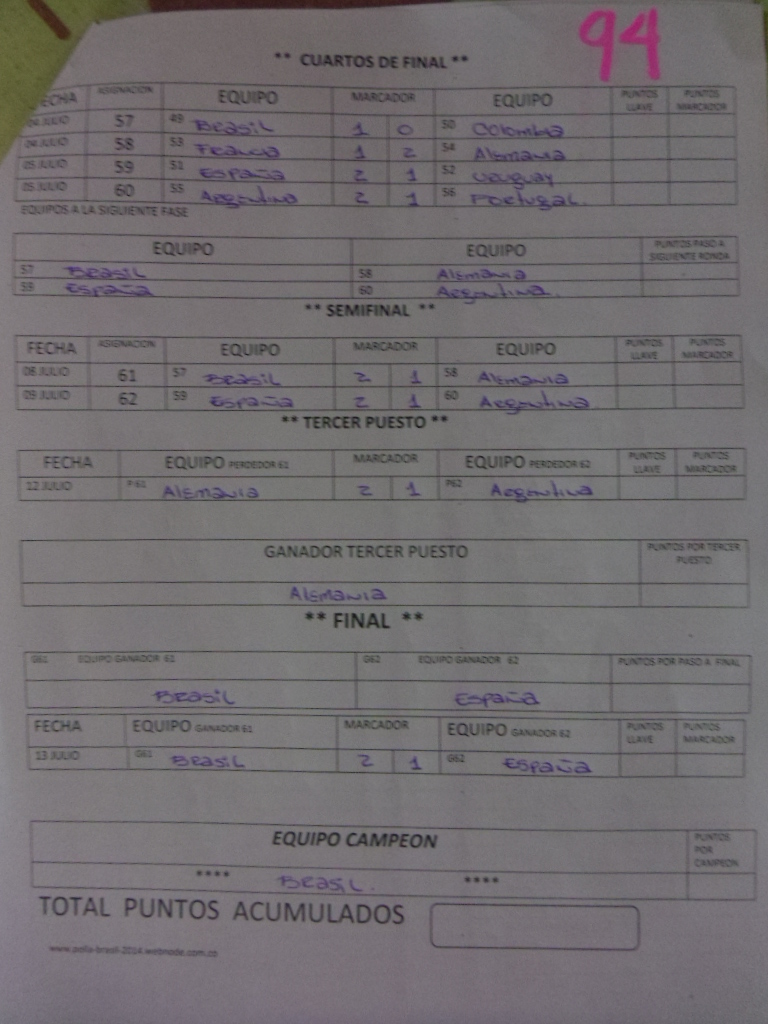 94
** CUARTOS DE FINAL **
FECHA ASIGNACION EQUIPO MARCADOR EQUIPO PUNTOS LLAVE PUNTOS MARCADOR
04 JULIO 57 49 Brasil 1 0 50 Colombia
04 JULIO 58 53 Francia 1 2 54 Alemania
05 JULIO 59 51 España 2 1 52 Uruguay
05 JULIO 60 55 Argentina 2 1 56 Portugal.
EQUIPOS A LA SIGUIENTE FASE
EQUIPO EQUIPO PUNTOS PASO A SIGUIENTE RONDA
57 Brasil 58 Alemania
59 España 60 Argentina.
** SEMIFINAL **
FECHA ASIGNACION EQUIPO MARCADOR EQUIPO PUNTOS LLAVE PUNTOS MARCADOR
08 JULIO 61 57 Brasil 2 1 58 Alemania
09 JULIO 62 59 España 2 1 60 Argentina
** TERCER PUESTO **
FECHA EQUIPO PERDEDOR 61 MARCADOR EQUIPO PERDEDOR 62 PUNTOS LLAVE PUNTOS MARCADOR
12 JULIO P61 Alemania 2 1 P62 Argentina
GANADOR TERCER PUESTO PUNTOS POR TERCER PUESTO
Alemania
** FINAL **
G61 EQUIPO GANADOR 61 G62 EQUIPO GANADOR 62 PUNTOS POR PASO A FINAL
Brasil España
FECHA EQUIPO GANADOR 61 MARCADOR EQUIPO GANADOR 62 PUNTOS LLAVE PUNTOS MARCADOR
13 JULIO G61 Brasil 2 1 G62 España
EQUIPO CAMPEON PUNTOS POR CAMPEON
**** Brasil. ****
TOTAL PUNTOS ACUMULADOS
www.polla-brasil-2014.webnode.com.co